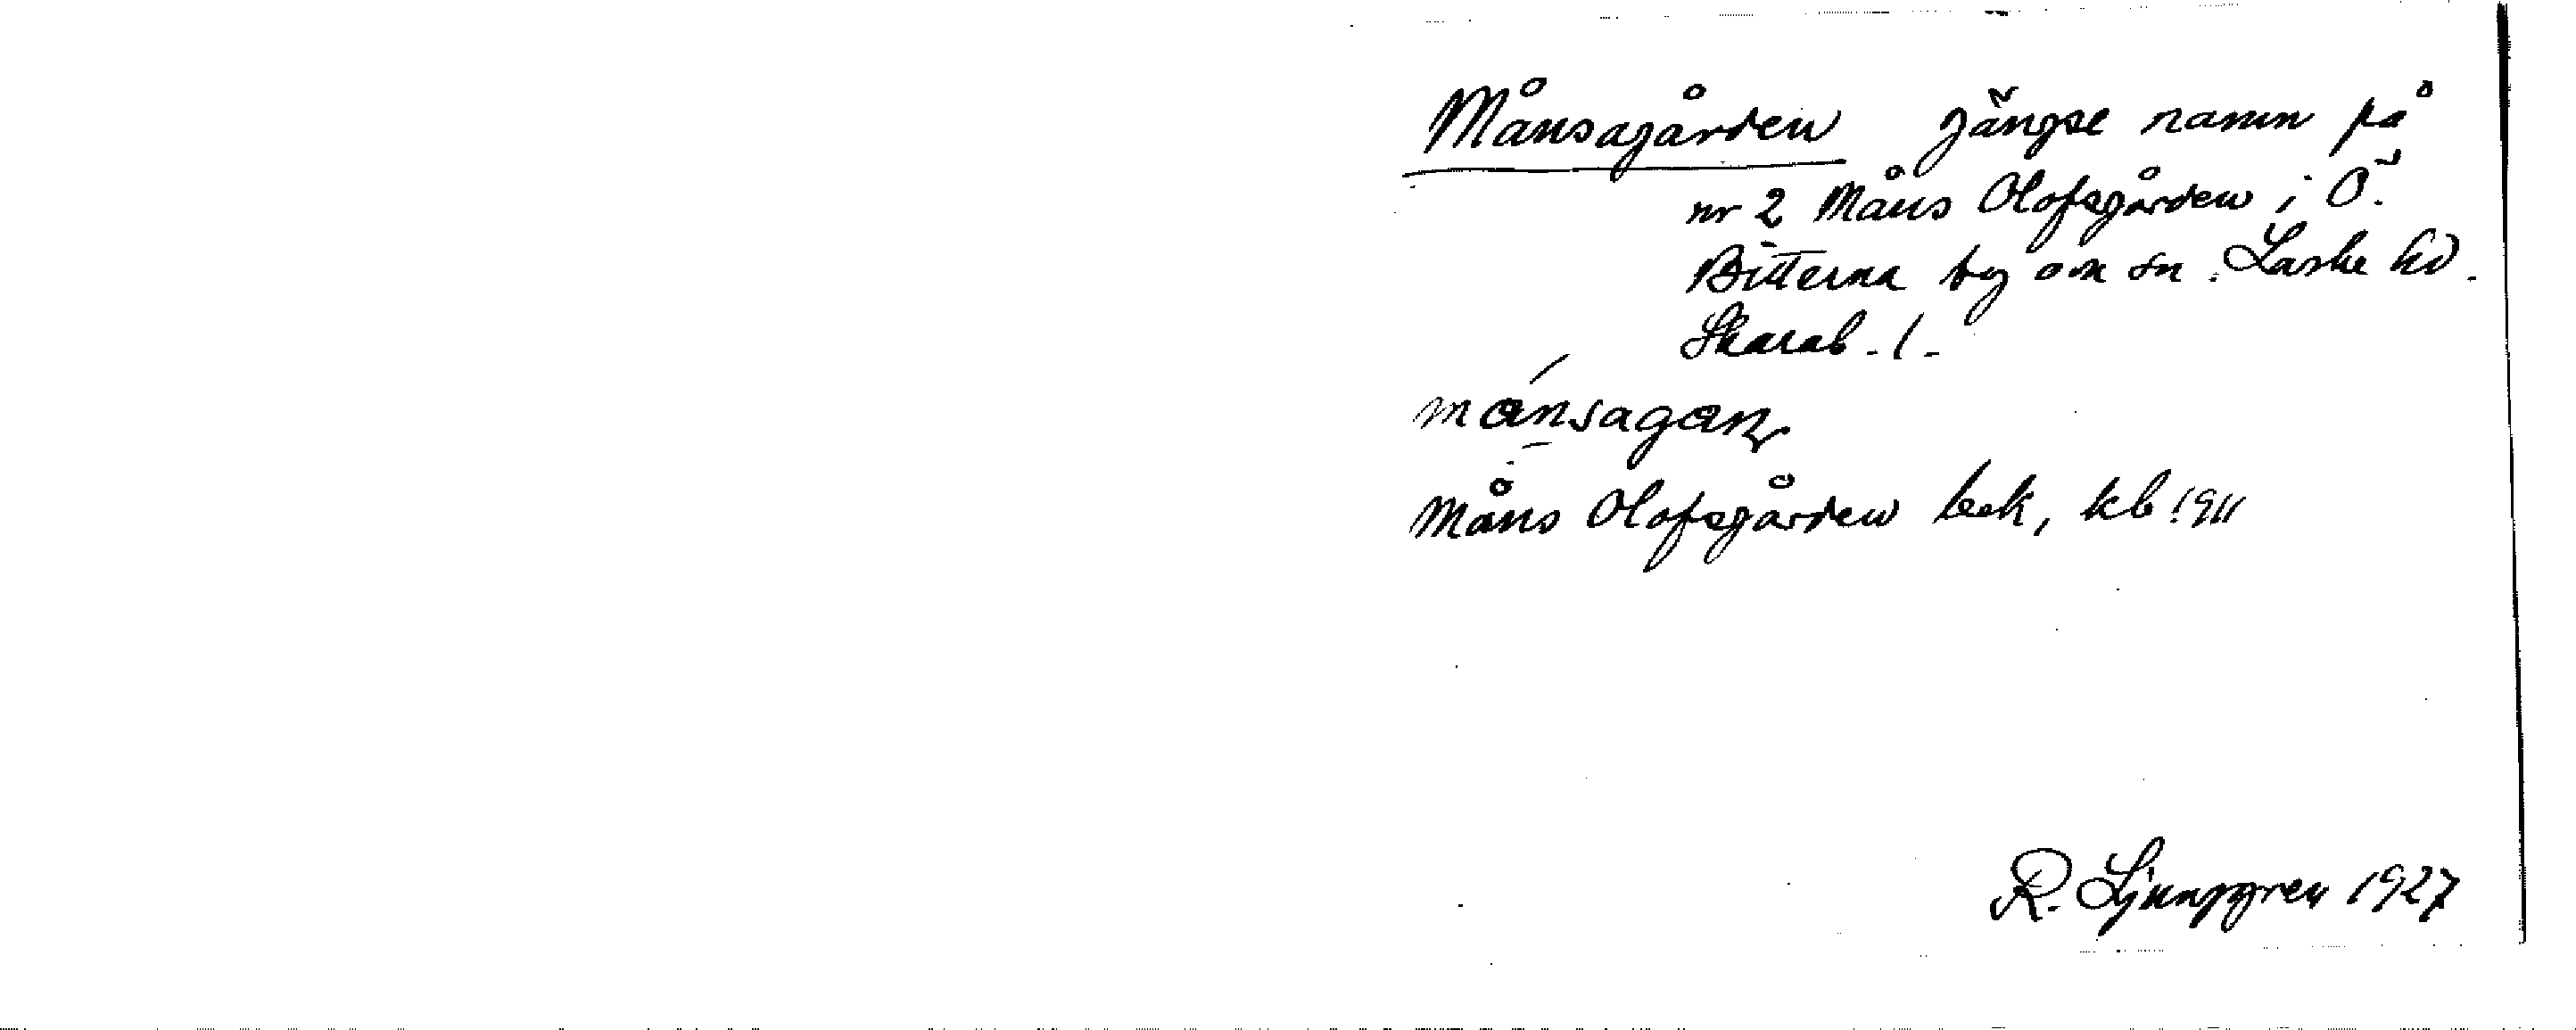 Månsagården gängse namn på
nr 2 Måns Olofsgården i Ö.
Bitterna by o sn. Laske hd.
Skarab. l.
mànsagan
Måns Olofsgården bok, kb 1911
R. Ljunggren 1927